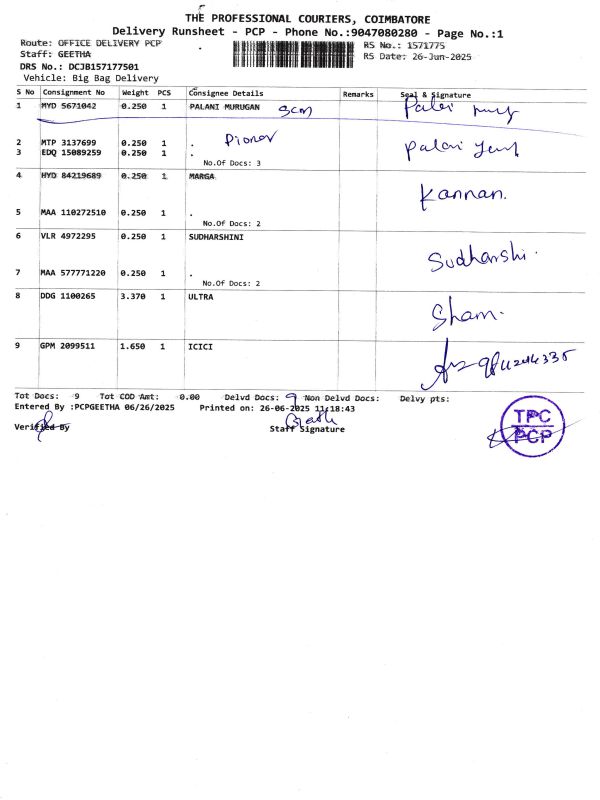 THE PROFESSIONAL COURIERS, COIMBATORE
Delivery Runsheet - PCP - Phone No.:9047080280 - Page No.:1
Route: OFFICE DELIVERY PCP
Staff: GEETHA
DRS No.: DCJB157177501
Vehicle: Big Bag Delivery
RS No.: 1571775
RS Date: 26-Jun-2025
S No Consignment No Weight PCS Consignee Details Remarks Seal & Signature
1 MYD 5671042 0.250 1 PALANI MURUGAN scm Palai
2 MTP 3137699 0.250 1 .
3 EDQ 15089259 0.250 1 . Palani
No.Of Docs: 3
4 HYD 84219689 0.250 1 MARGA Kannan.
5 MAA 110272510 0.250 1 .
No.Of Docs: 2
6 VLR 4972295 0.250 1 SUDHARSHINI Sudharshi.
7 MAA 577771220 0.250 1 .
No.Of Docs: 2
8 DDG 1100265 3.370 1 ULTRA Sham.
9 GPM 2099511 1.650 1 ICICI
Tot Docs: 9 Tot COD Amt: 0.00 Delvd Docs: 9 Non Delvd Docs: Delvy pts:
Entered By :PCPGEETHA 06/26/2025 Printed on: 26-06-2025 11:18:43
Verified By Staff Signature
TPC
PCP